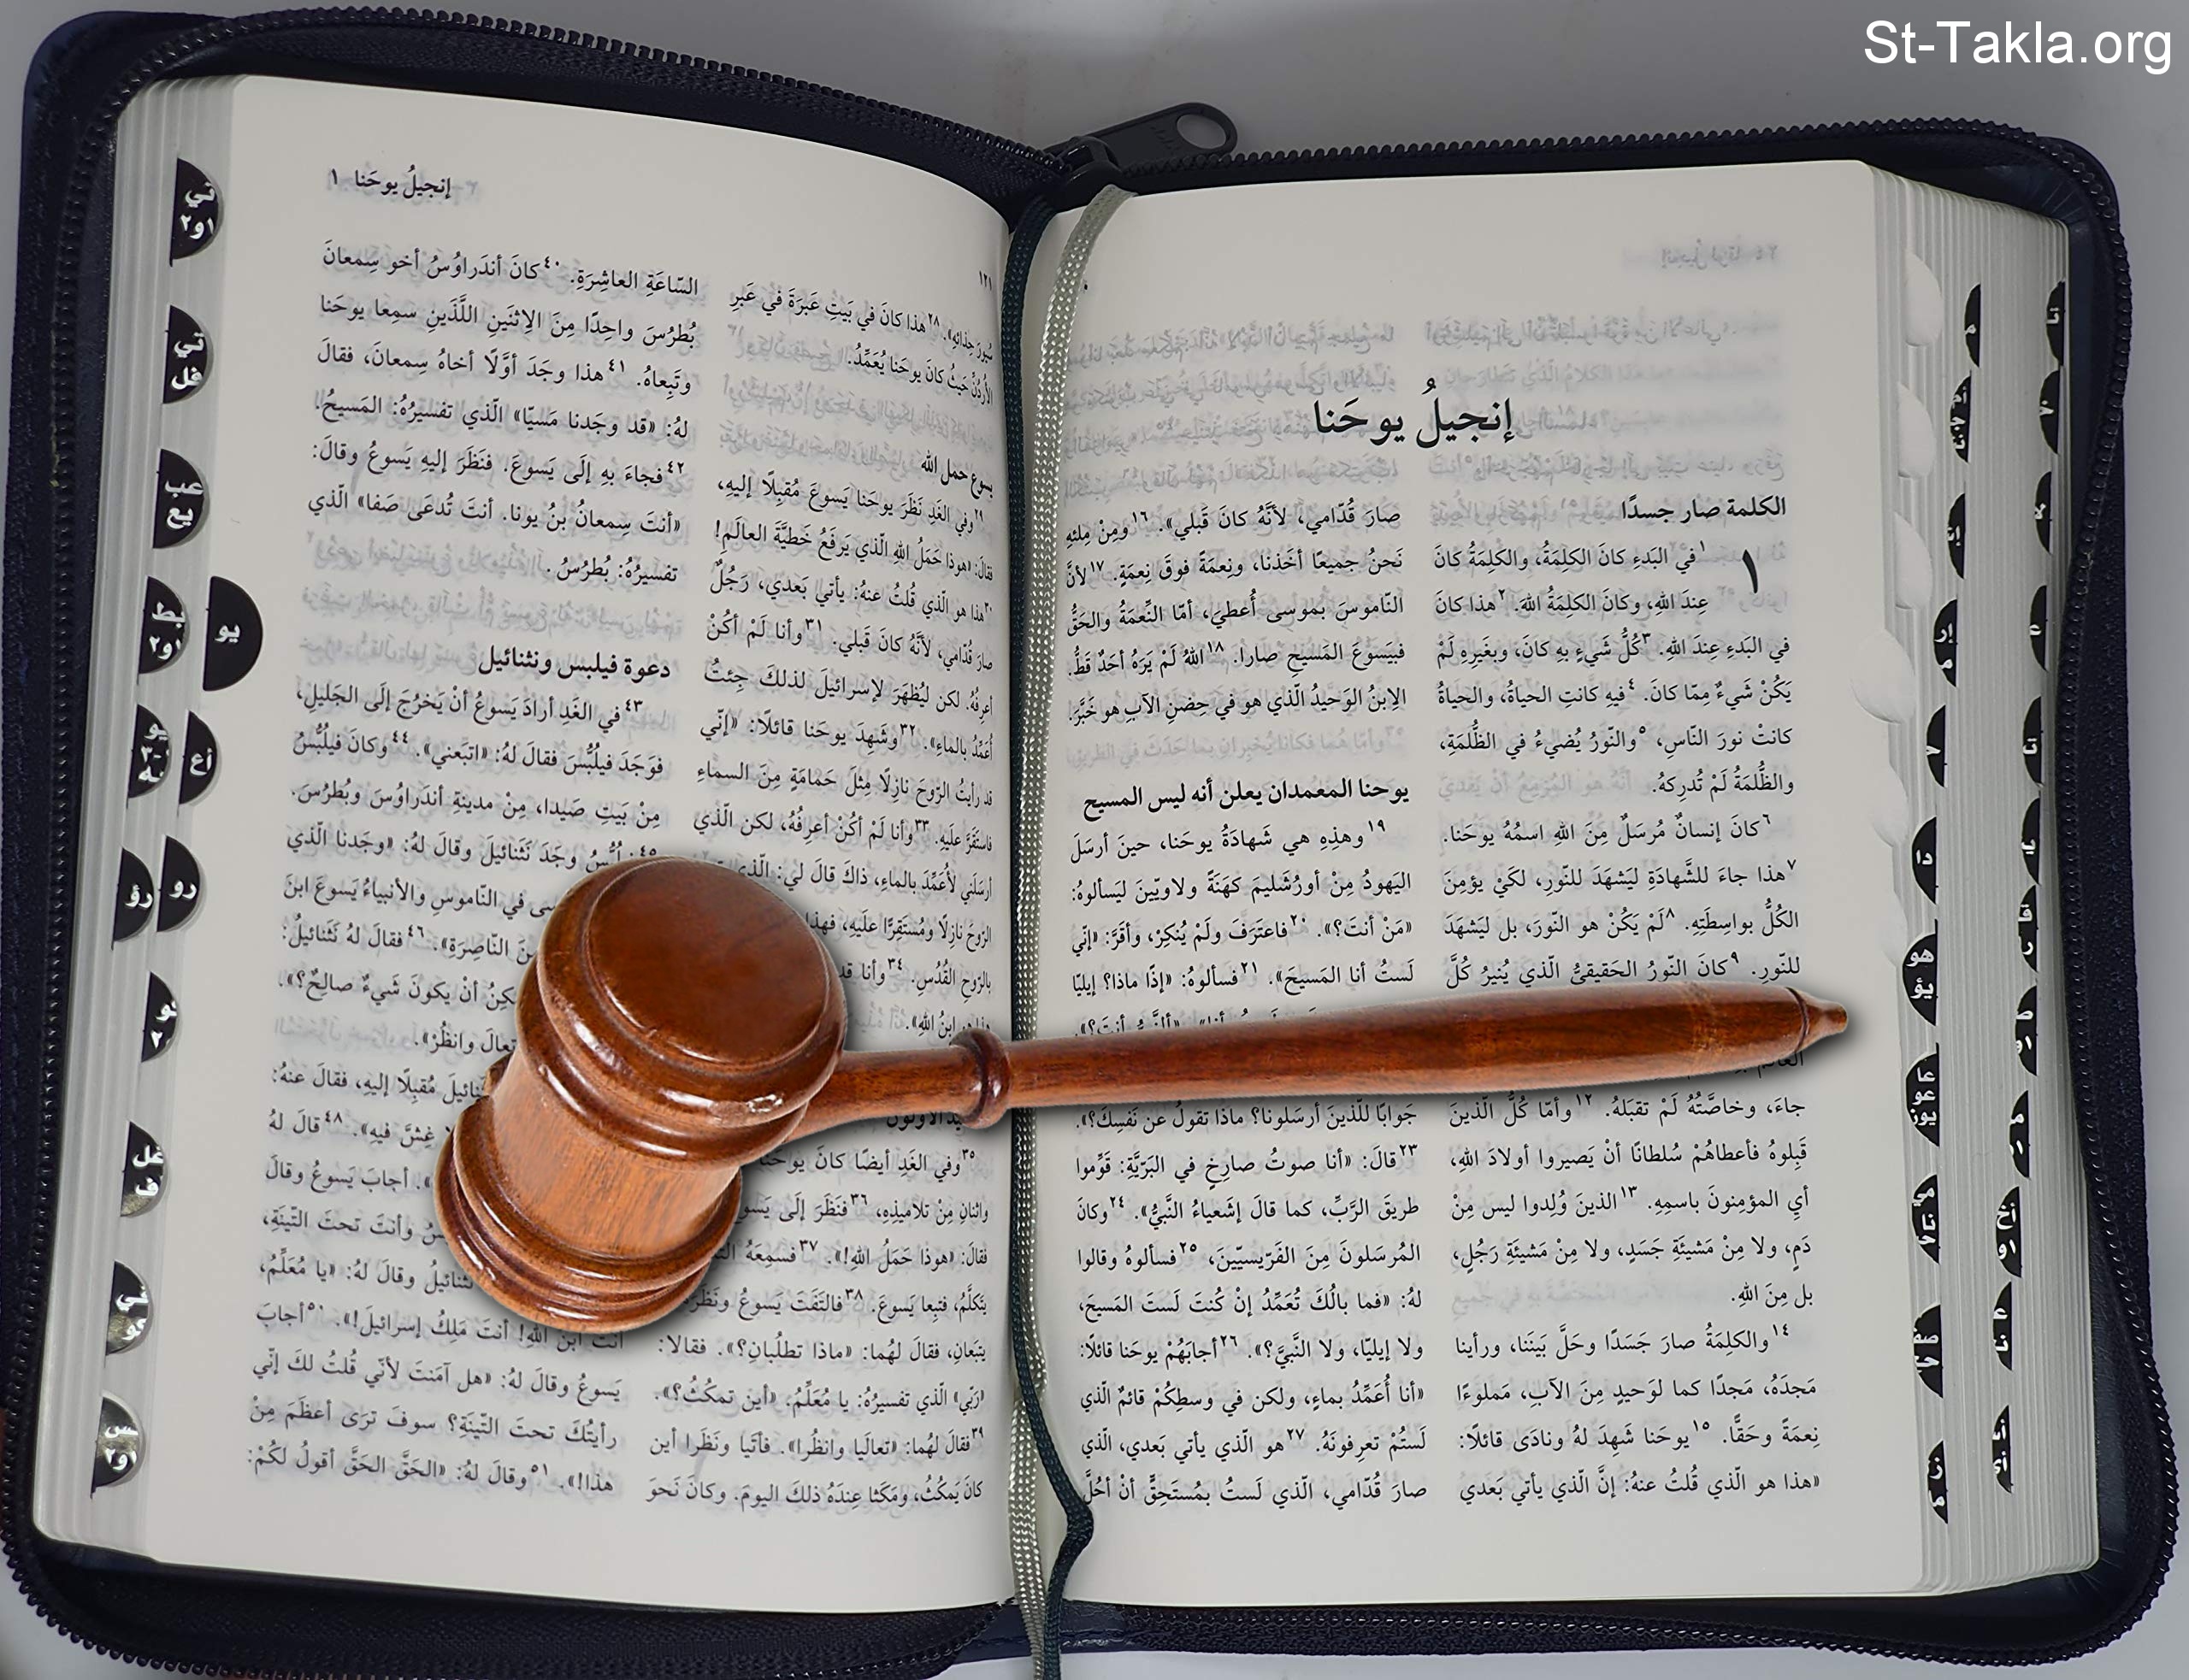 St-Takla.org
إنجيلُ يوحَنا
الكلمة صار جسدًا
١
١في البَدءِ كانَ الكلِمَةُ، والكلِمَةُ كانَ
عِندَ اللهِ، وكانَ الكلِمَةُ اللهَ. ٢هذا كانَ
في البَدءِ عِندَ اللهِ. ٣كُلُّ شَيءٍ بهِ كانَ، وبغَيرِهِ لَمْ
يَكُنْ شَيءٌ مِمّا كانَ. ٤فيهِ كانتِ الحياةُ، والحياةُ
كانتْ نورَ النّاسِ، ٥والنّورُ يُضيءُ في الظُّلمَةِ،
والظُّلمَةُ لَمْ تُدرِكهُ.
٦كانَ إنسانٌ مُرسَلٌ مِنَ اللهِ اسمُهُ يوحَنا.
٧هذا جاءَ للشَّهادَةِ ليَشهَدَ للنّورِ، لكَيْ يؤمِنَ
الكُلُّ بواسِطَتِهِ. ٨لَمْ يَكُنْ هو النّورَ، بل ليَشهَدَ
للنّورِ. ٩كانَ النّورُ الحَقيقيُّ الّذي يُنيرُ كُلَّ
جاءَ، وخاصَّتُهُ لَمْ تقبَلهُ. ١٢وأمّا كُلُّ الّذينَ
قَبِلوهُ فأعطاهُمْ سُلطانًا أنْ يَصيروا أولادَ اللهِ،
أيِ المؤمِنونَ باسمِهِ. ١٣الذينَ وُلِدوا ليس مِنْ
دَمٍ، ولا مِنْ مَشيئَةِ جَسَدٍ، ولا مِنْ مَشيئَةِ رَجُلٍ،
بل مِنَ اللهِ.
١٤والكلِمَةُ صارَ جَسَدًا وحَلَّ بَينَنا، ورأينا
مَجدَهُ، مَجدًا كما لوَحيدٍ مِنَ الآبِ، مَملوءًا
نِعمَةً وحَقًّا. ١٥يوحَنا شَهِدَ لهُ ونادَى قائلًا:
«هذا هو الّذي قُلتُ عنهُ: إنَّ الّذي يأتي بَعدي
صارَ قُدّامي، لأنَّهُ كانَ قَبلي». ١٦ومِنْ مِلئهِ
نَحنُ جميعًا أخَذنا، ونِعمَةً فوقَ نِعمَةٍ. ١٧لأنَّ
النّاموسَ بموسى أُعطيَ، أمّا النِّعمَةُ والحَقُّ
فبيَسوعَ المَسيحِ صارا. ١٨اللهُ لَمْ يَرَهُ أحَدٌ قَطُّ.
الاِبنُ الوَحيدُ الّذي هو في حِضنِ الآبِ هو خَبَّرَ.
يوحنا المعمدان يعلن أنه ليس المسيح
١٩وهذِهِ هي شَهادَةُ يوحَنا، حينَ أرسَلَ
اليَهودُ مِنْ أورُشَليمَ كهَنَةً ولاويّينَ ليَسألوهُ:
«مَنْ أنتَ؟». ٢٠فاعتَرَفَ ولَمْ يُنكِرْ، وأقَرَّ: «إنّي
لَستُ أنا المَسيحَ». ٢١فسألوهُ: «إذًا ماذا؟ إيليّا
جَوابًا للّذينَ أرسَلونا؟ ماذا تقولُ عن نَفسِكَ؟».
٢٣قالَ: «أنا صوتُ صارِخٍ في البَرّيَّةِ: قَوِّموا
طريقَ الرَّبِّ، كما قالَ إشَعياءُ النَّبيُّ». ٢٤وكانَ
المُرسَلونَ مِنَ الفَرّيسيّينَ، ٢٥فسألوهُ وقالوا
لهُ: «فما بالُكَ تُعَمِّدُ إنْ كُنتَ لَستَ المَسيحَ،
ولا إيليّا، ولا النَّبيَّ؟». ٢٦أجابَهُمْ يوحَنا قائلًا:
«أنا أُعَمِّدُ بماءٍ، ولكن في وسطِكُمْ قائمٌ الّذي
لَستُمْ تعرِفونَهُ. ٢٧هو الّذي يأتي بَعدي، الّذي
صارَ قُدّامي، الّذي لَستُ بمُستَحِقٍّ أنْ أحُلَّ
١٢١
إنجيلُ يوحَنا ١
سُيورَ حِذائهِ». ٢٨هذا كانَ في بَيتِ عَبرَةَ في عَبرِ
الأُردُنِّ حَيثُ كانَ يوحَنا يُعَمِّدُ.
يسوع حمل الله
٢٩وفي الغَدِ نَظَرَ يوحَنا يَسوعَ مُقبِلًا إليهِ،
فقالَ: «هوذا حَمَلُ اللهِ الّذي يَرفَعُ خَطيَّةَ العالَمِ!
٣٠هذا هو الّذي قُلتُ عنهُ: يأتي بَعدي، رَجُلٌ
صارَ قُدّامي، لأنَّهُ كانَ قَبلي. ٣١وأنا لَمْ أكُنْ
أعرِفُهُ. لكن ليُظهَرَ لإسرائيلَ لذلكَ جِئتُ
أُعَمِّدُ بالماءِ». ٣٢وشَهِدَ يوحَنا قائلًا: «إنّي
قد رأيتُ الرّوحَ نازِلًا مِثلَ حَمامَةٍ مِنَ السماءِ
فاستَقَرَّ علَيهِ. ٣٣وأنا لَمْ أكُنْ أعرِفُهُ، لكن الّذي
أرسَلَني لأُعَمِّدَ بالماءِ، ذاكَ قالَ لي: الّذي
الرّوحَ نازِلًا ومُستَقِرًّا علَيهِ، فهذا
بالرّوحِ القُدُسِ. ٣٤وأنا قد
ابنُ اللهِ».
٣٥وفي الغَدِ أيضًا كانَ يوحَنا
واثنانِ مِنْ تلاميذِهِ، ٣٦فنَظَرَ إلَى يَسوعَ
فقالَ: «هوذا حَمَلُ اللهِ!». ٣٧فسمِعَهُ
يتَكلَّمُ، فتبِعا يَسوعَ. ٣٨فالتَفَتَ يَسوعُ ونَظَرَ
يتبَعانِ، فقالَ لهُما: «ماذا تطلُبانِ؟». فقالا:
«رَبّي» الّذي تفسيرُهُ: يا مُعَلِّمُ، «أين تمكُثُ؟».
٣٩فقالَ لهُما: «تعالَيا وانظُرا». فأتَيا ونَظَرا أين
كانَ يَمكُثُ، ومَكَثا عِندَهُ ذلكَ اليومَ. وكانَ نَحوَ
السّاعَةِ العاشِرَةِ. ٤٠كانَ أندَراوُسُ أخو سِمعانَ
بُطرُسَ واحِدًا مِنَ الاِثنَينِ اللَّذَينِ سمِعا يوحَنا
وتَبِعاهُ. ٤١هذا وجَدَ أوَّلًا أخاهُ سِمعانَ، فقالَ
لهُ: «قد وجَدنا مَسيّا» الّذي تفسيرُهُ: المَسيحُ.
٤٢فجاءَ بهِ إلَى يَسوعَ. فنَظَرَ إليهِ يَسوعُ وقالَ:
«أنتَ سِمعانُ بنُ يونا. أنتَ تُدعَى صَفا» الّذي
تفسيرُهُ: بُطرُسُ.
دعوة فيلبس ونثنائيل
٤٣في الغَدِ أرادَ يَسوعُ أنْ يَخرُجَ إلَى الجَليلِ،
فوَجَدَ فيلُبُّسَ فقالَ لهُ: «اتبَعني». ٤٤وكانَ فيلُبُّسُ
مِنْ بَيتِ صَيدا، مِنْ مدينةِ أندَراوُسَ وبُطرُسَ.
وجَدَ نَثَنائيلَ وقالَ لهُ: «وجَدنا الّذي
في النّاموسِ والأنبياءُ يَسوعَ ابنَ
النّاصِرَةِ». ٤٦فقالَ لهُ نَثَنائيلُ:
أنْ يكونَ شَيءٌ صالِحٌ؟».
تعالَ وانظُرْ».
مُقبِلًا إليهِ، فقالَ عنهُ:
غِشَّ فيهِ». ٤٨قالَ لهُ
أجابَ يَسوعُ وقالَ
وأنتَ تحتَ التّينَةِ،
وقالَ لهُ: «يا مُعَلِّمُ،
أنتَ ابنُ اللهِ! أنتَ مَلِكُ إسرائيلَ!». ٥٠أجابَ
يَسوعُ وقالَ لهُ: «هل آمَنتَ لأنّي قُلتُ لكَ إنّي
رأيتُكَ تحتَ التّينَةِ؟ سوفَ ترَى أعظَمَ مِنْ
هذا!». ٥١وقالَ لهُ: «الحَقَّ الحَقَّ أقولُ لكُمْ:
تي
١و٢
تي
فل
عب
يع
بط
١و٢
يو
أع
رو
رؤ
دا
هو
يؤ